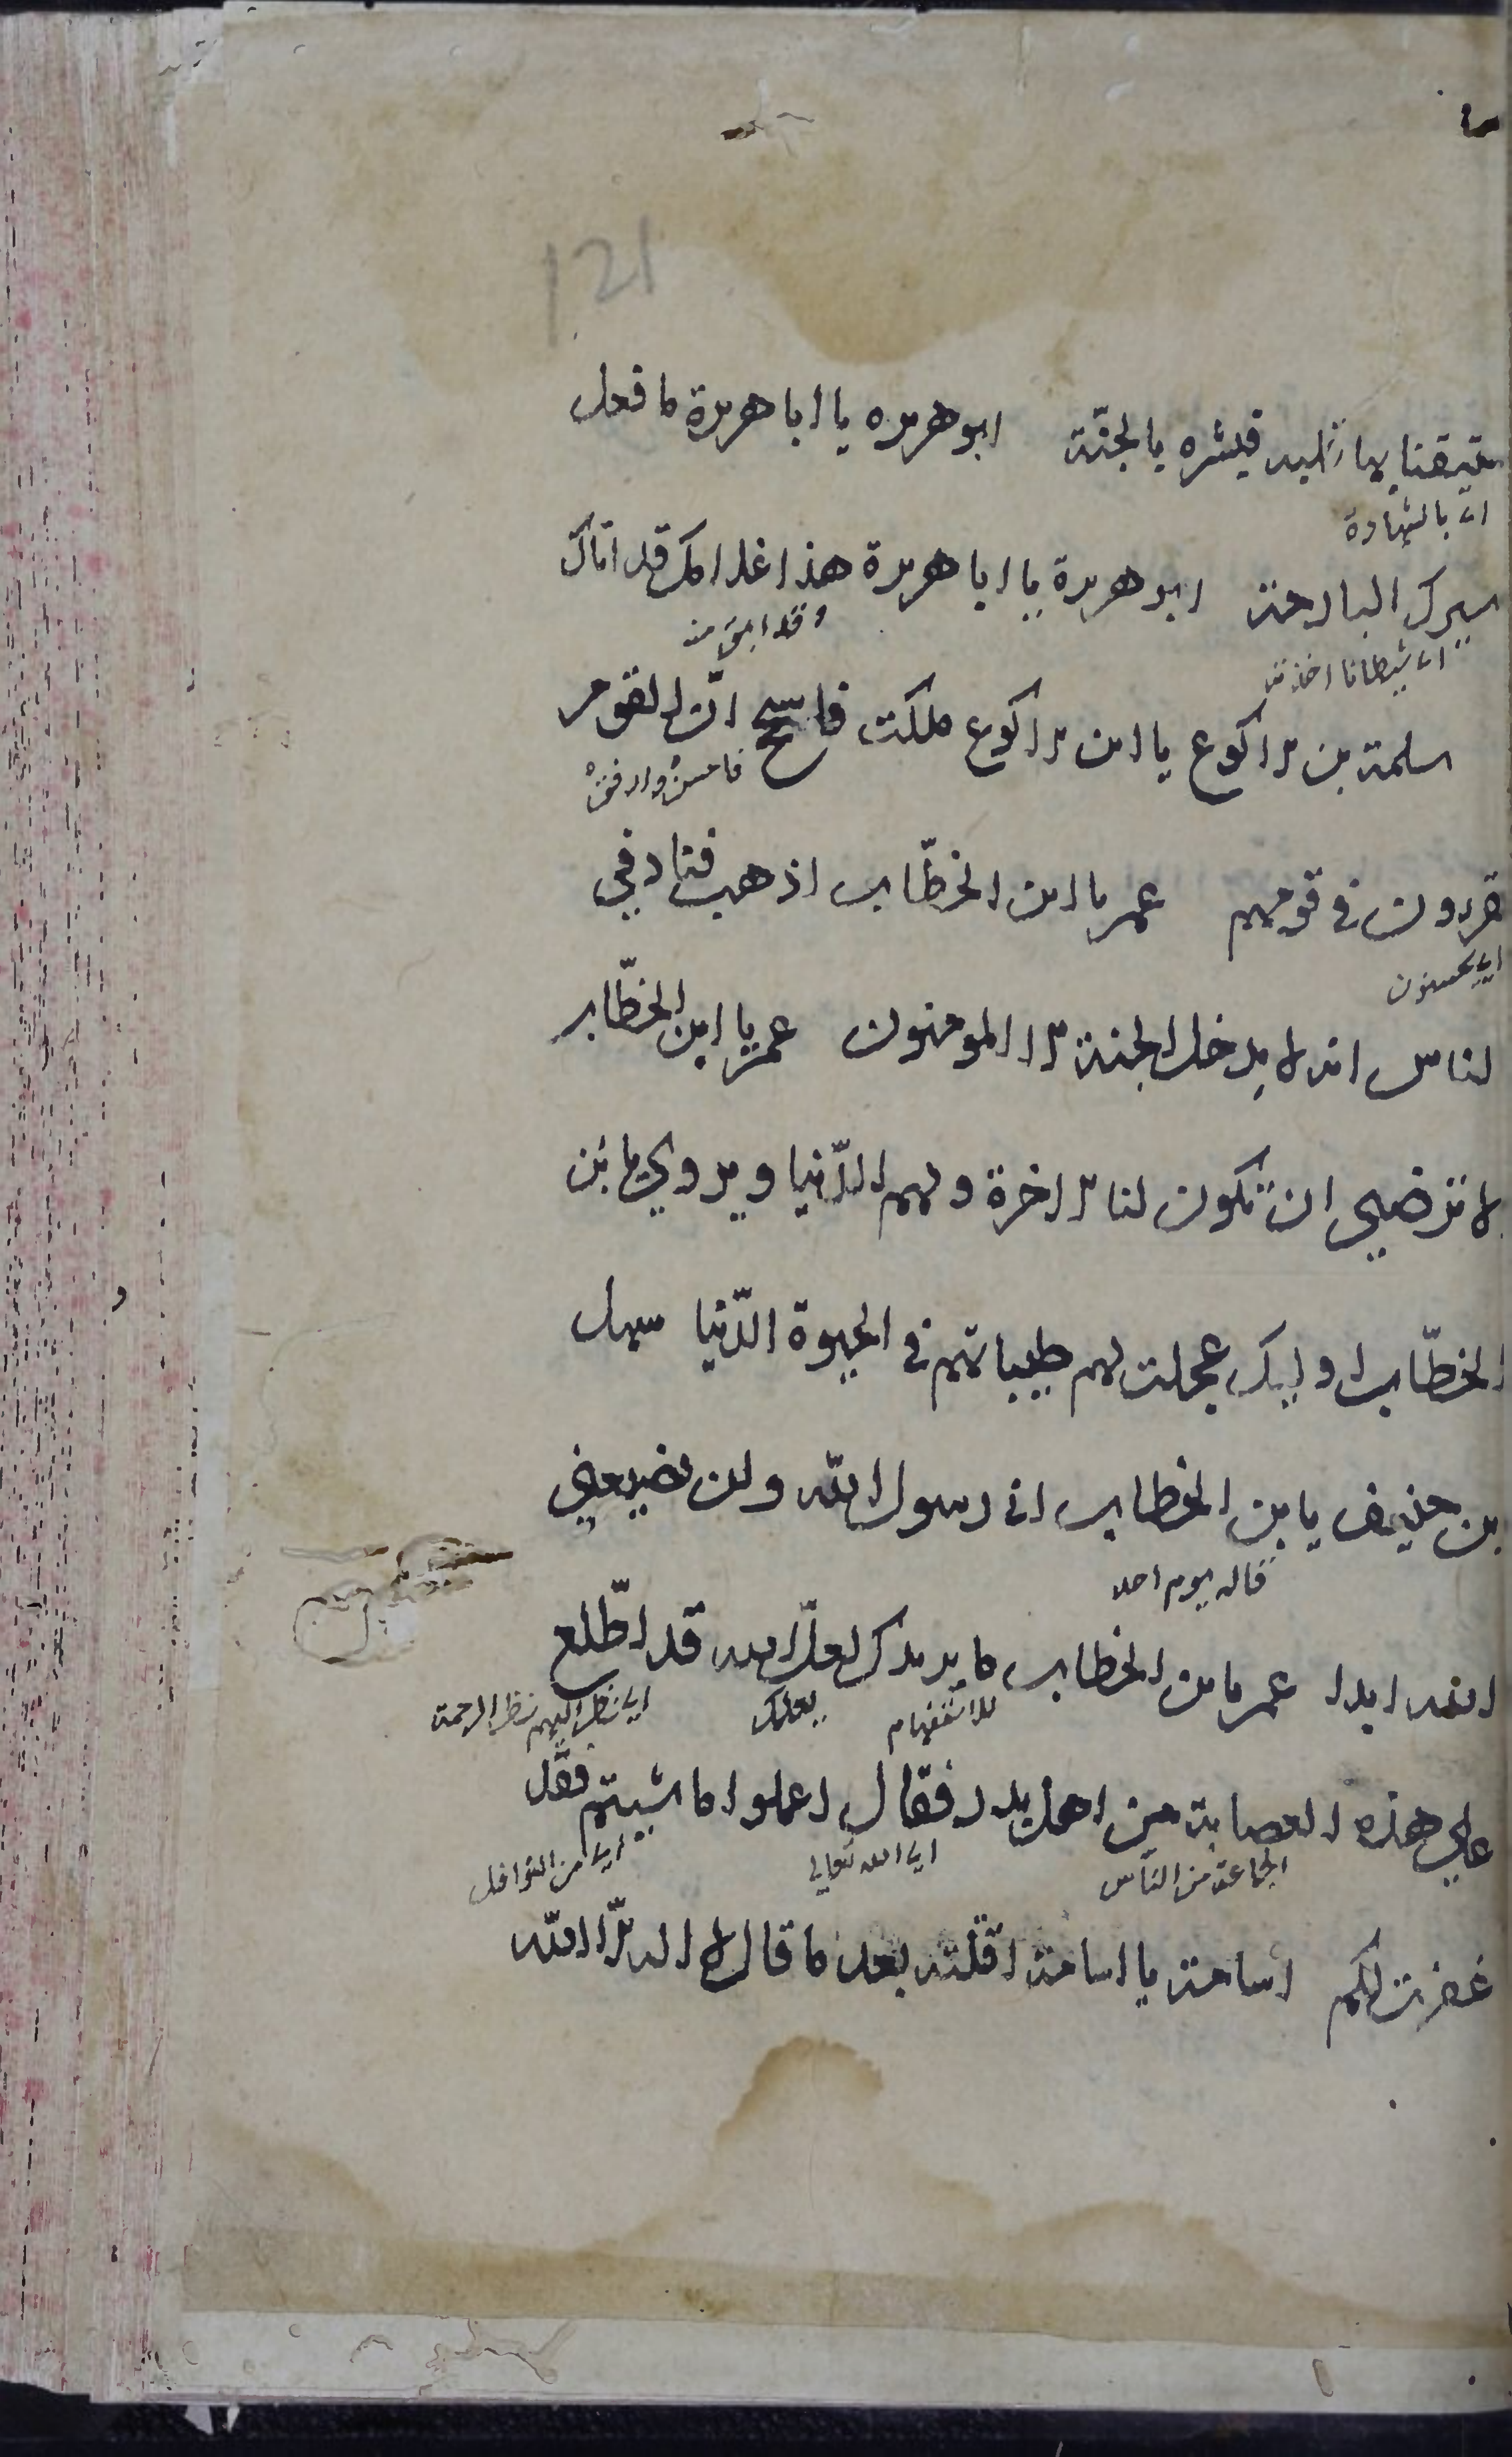 121
مستيقنا بها قلبه فبشره بالجنة ابو هريره يا ابا هريرة ما فعل
اى بالشهادة
اسيرك البارحة ابو هريرة يا ابا هريرة هذا غلامك قد اتاك
اى شيطانا اخذته وقد ابق منه
سلمة بن الاكوع يا ابن الاكوع ملكت فاسجح ان القوم
فاحسن وارفق
يقرون في قومهم عمر يا ابن الخطّاب اذهب فناد في
اى يحسنون
الناس انه لا يدخل الجنة الا المومنون عمر يا ابن الخطّاب
الا ترضى ان تكون لنا الاخرة ولهم الدّنيا ويروي يا بن
الخطّاب اولئك عجلت لهم طيباتهم في الحيوة الدّنيا سهل
بن حنيف يا بن الخطاب انى رسول الله ولن يضيعني
قاله يوم احد
الله ابدا عمر يا بن الخطاب ما يدريك لعلّ الله قد اطّلع
للاستفهام يعلمك اى نظر اليهم نظر الرحمة
على هذه العصابة من اهل بدر فقال اعملوا ما شيتم فقد
الجماعة من الناس اى الله تعالى اى من النوافل
غفرت لكم اسامة يا اسامة اقتلته بعد ما قال لا اله الّا الله